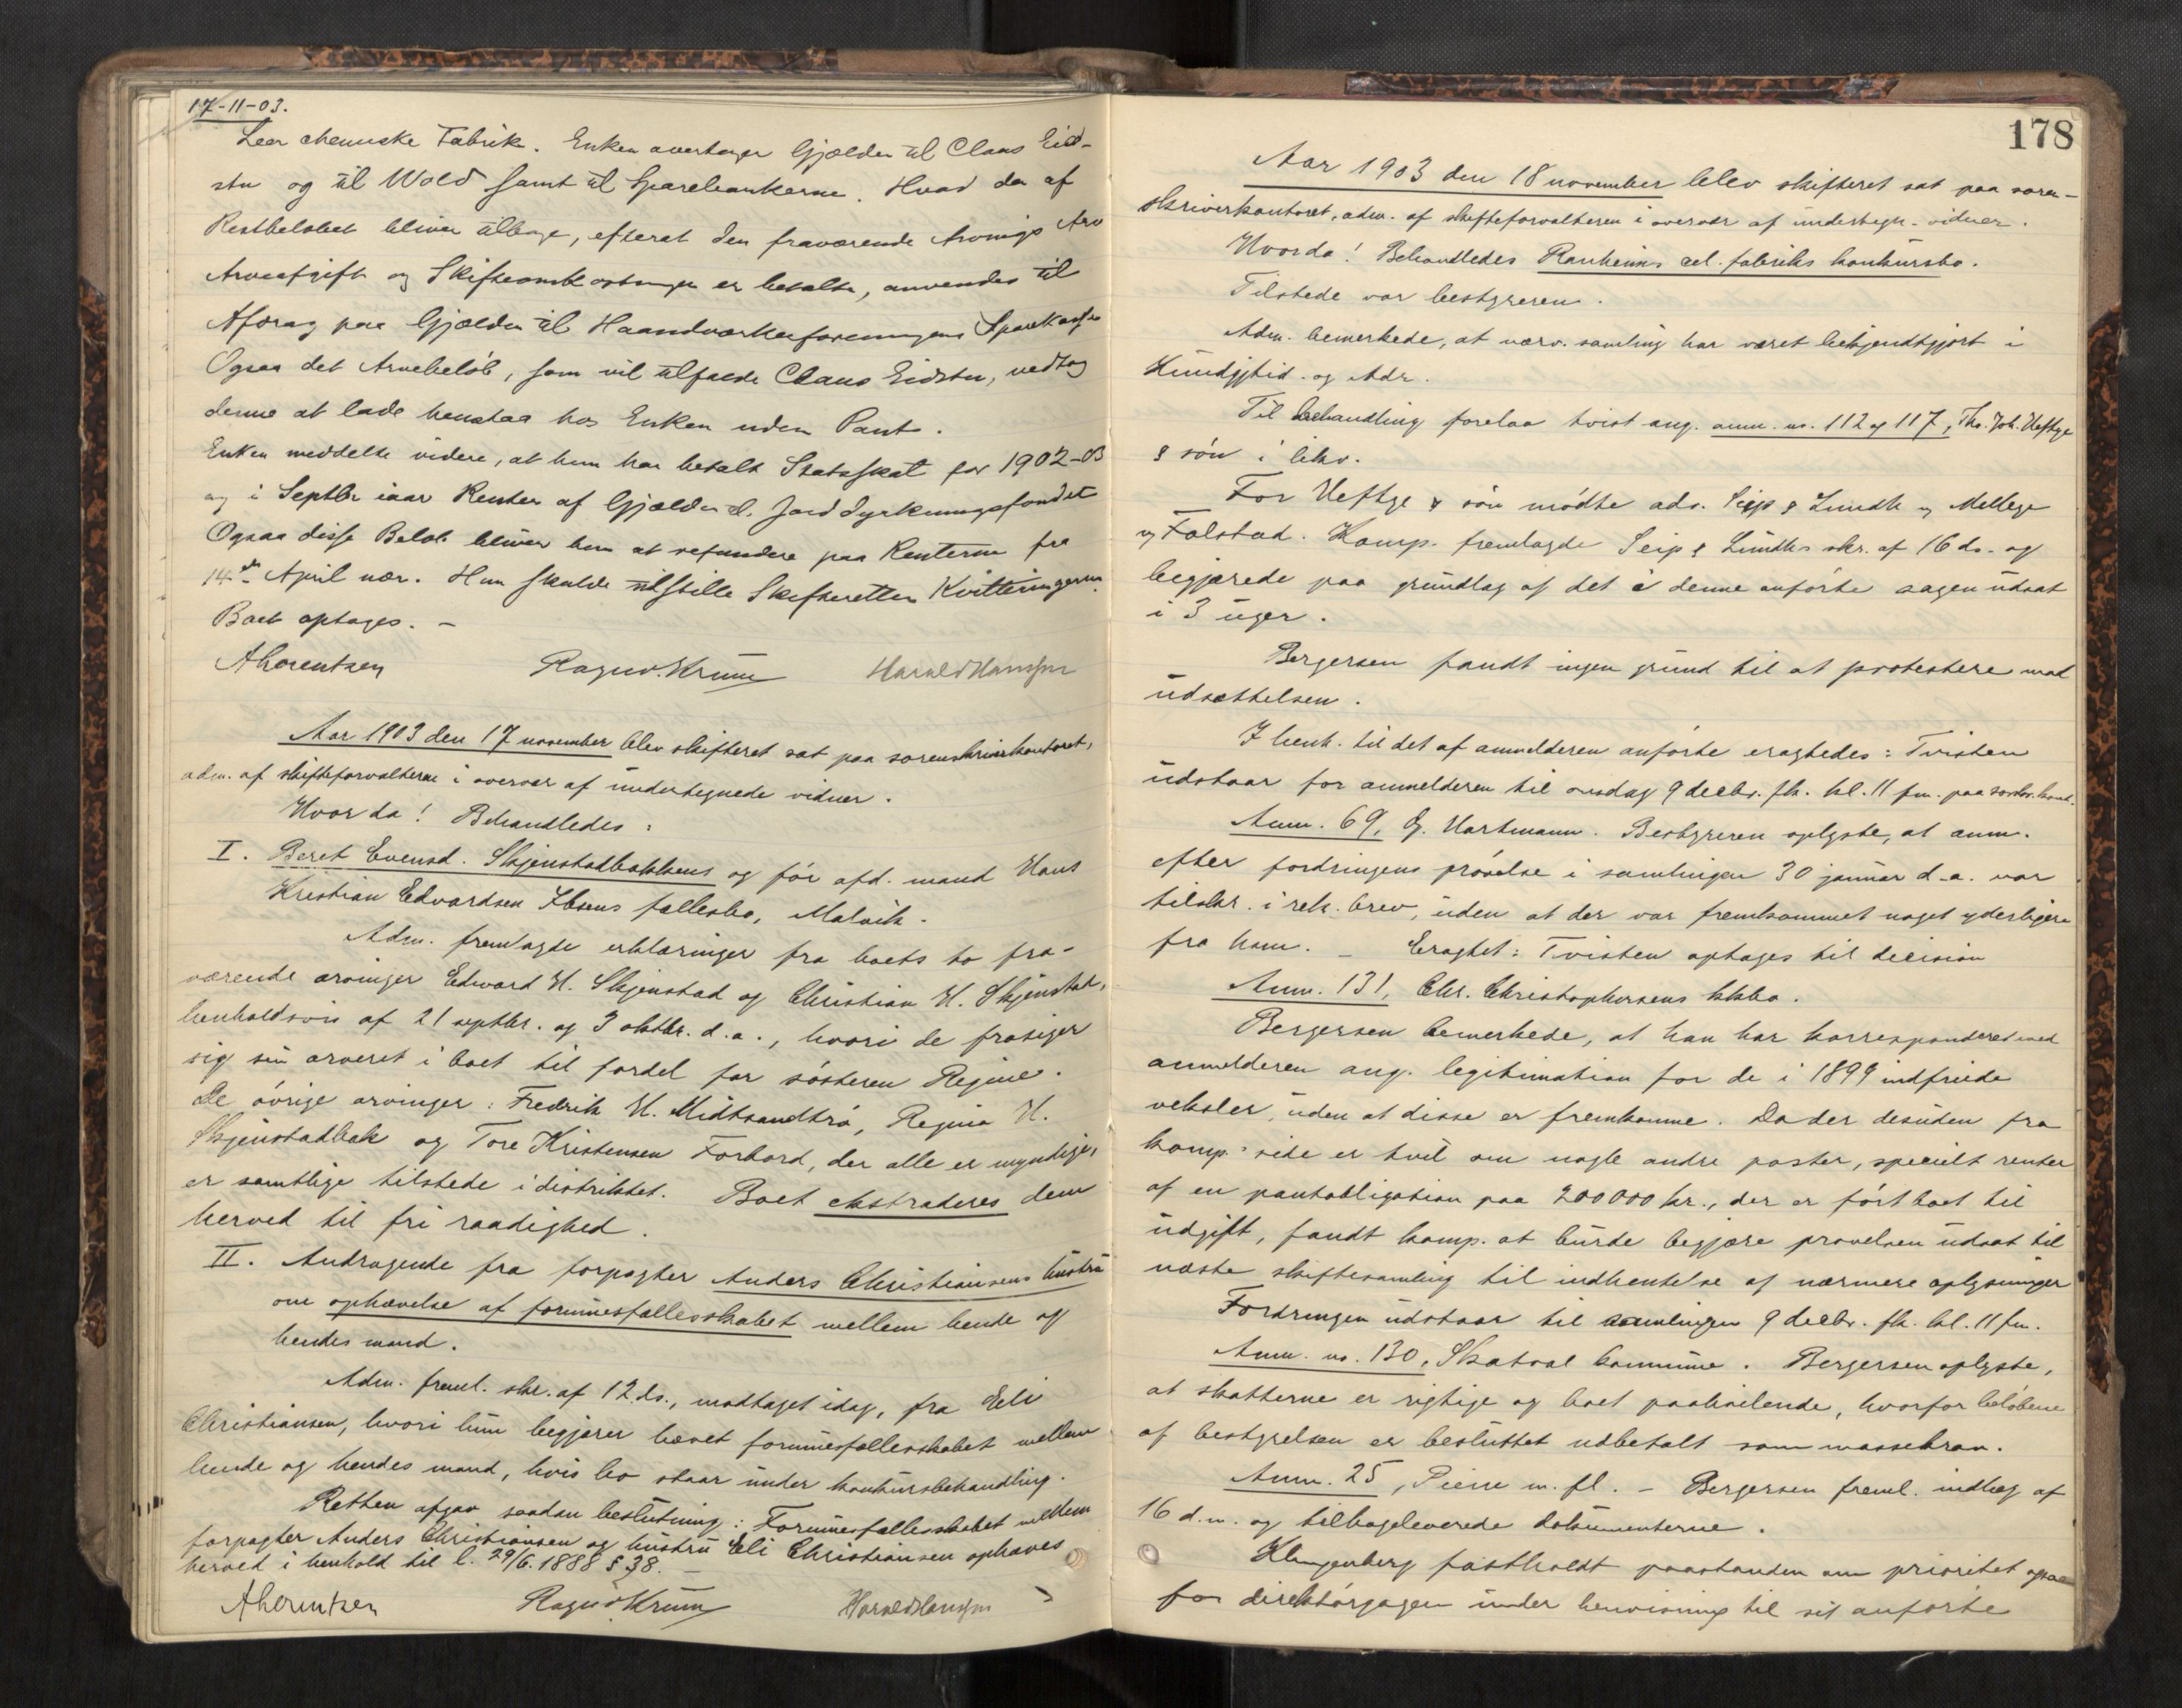 17-11-03.
Leer chemiske Fabrik. Enken overtager Gjælden til Claus Eid-
stu og til Wold samt til Sparebankerne. Hvad der af
Restbeløbet bliver tilbage, efterat den fraværende Arvings Arv
Arveafgift og Skifteomkostninger er betalte, anvendes til
Afdrag paa Gjælden til Haandværkerforeningens Sparekasse
Ogsaa det Arvebeløb, som vil tilfalde Claus Eidstu, vedtog
denne at lade henstaa hos Enken uden Pant.
Enken meddelte videre, at hun har betalt Statsskat for 1902-03
og i Septbr iaar Renter af Gjælden t. Jorddyrkningsfondet
Ogsaa disse Beløb bliver hun at refundere paa Renterne fra
14de April nær. Hun skulde tilstille Skifteretten Kvitteringerne.
Boet optages. –
ALorentzen Ragnv. Krum Harald Hanssen
Aar 1903 den 17 november blev skifteret sat paa sorenskriverkontoret,
adm. af skifteforvalteren i overvær af undertegnede vidner.
Hvorda! Behandledes:
I. Beret Evensd. Skjenstadbakkens og før afd. mand Hans
Kristian Edvardsen Ibsens fællesbo, Malvik.
Adm. fremlagde erklæringer fra boets to fra-
værende arvinger Edward H. Skjenstad og Christian H. Skjenstad,
henholdsvis af 21 septbr. og 3 oktbr. d.a., hvori de frasiger
sig sin arveret i boet til fordel for søsteren Regine.
De øvrige arvinger: Fredrik H. Midtsandtrø, Regina H.
Skjenstadbak og Tore Kristensen Forbord, der alle er myndige,
er samtlige tilstede i distriktet. Boet ekstraderes dem
herved til fri raadighed.
II. Andragende fra forpagter Anders Christiansens hustru
om ophævelse af formuesfællesskabet mellem hende og
hendes mand.
Adm. freml. skr. af 12 ds., modtaget idag, fra Eli
Christiansen, hvori hun begjærer hævet formuesfællesskabet mellem
hende og hendes mand, hvis bo staar under konkursbehandling.
Retten afgav saadan beslutning: Formuesfællesskabet mellem
forpagter Anders Christiansen og hustru Eli Christiansen ophæves
herved i henhold til l. 29/6.1888 § 38. –
ALorentzen Ragnv. Krum Harald Hanssen
178
Aar 1903 den 18 november blev skifteret sat paa soren-
skriverkontoret, adm. af skifteforvalteren i overvær af undertegn. vidner.
Hvorda! Behandledes Ranheims cel. fabriks konkursbo.
Tilstede var bestyreren.
Adm. bemerkede, at nærv. samling har været bekjendtgjort i
Kundgjtid. og Adr.
Til behandling forelaa tvist ang. anm. no. 112 og 117, Tho. Joh. Heftye
& søn i likv.
For Heftye & søn mødte adv. Seip & Lundh og Mellbye
og Falstad. Komp. fremlagde Seip & Lundhs skr. af 16 ds. og
begjærede paa grundlag af det i denne anførte sagen udsat
i 3 uger.
Bergersen fandt ingen grund til at protestere mod
udsættelsen.
I henh. til det af anmelderen anførte eragtedes: Tvisten
udstaar for anmelderen til onsdag 9 decbr. fk. kl. 11 fm. paa sorskr. kont.
Anm. 69, G. Hartmann. Bestyreren oplyste, at anm.
efter fordringens prøvelse i samlingen 30 januar d.a. var
tilskr. i rek. brev, uden at der var fremkommet noget yderligere
fra ham. – Eragtet: Tvisten optages til decision
Anm. 131, Chr. Christophersens kkbo.
Bergersen bemerkede, at han har korresponderet med
anmelderen ang. legitimation for de i 1899 indfriede
veksler, uden at disse er fremkomne. Da der desuden fra
komp.s side er tvil om nogle andre poster, specielt renter
af en pantobligation paa 200000 kr., der er ført boet til
udgift, fandt komp. at burde begjære prøvelsen udsat til
næste skiftesamling til indhentelse af nærmere oplysninger
Fordringen udstaar til samlingen 9 decbr. fk. kl. 11 fm.
Anm. no. 130, Skatval kommune. Bergersen oplyste,
at skatterne er rigtige og boet paahvilende, hvorfor beløbene
af bestyrelsen er besluttet udbetalt som massekrav.
Anm. 25, Pierre m. fl. – Bergersen freml. indlæg af
16 d.m. og tilbageleverede dokumenterne.
Klingenberg fastholdt paastanden om prioritet ogsaa
for direktørgagen under henvisning til sit anførte